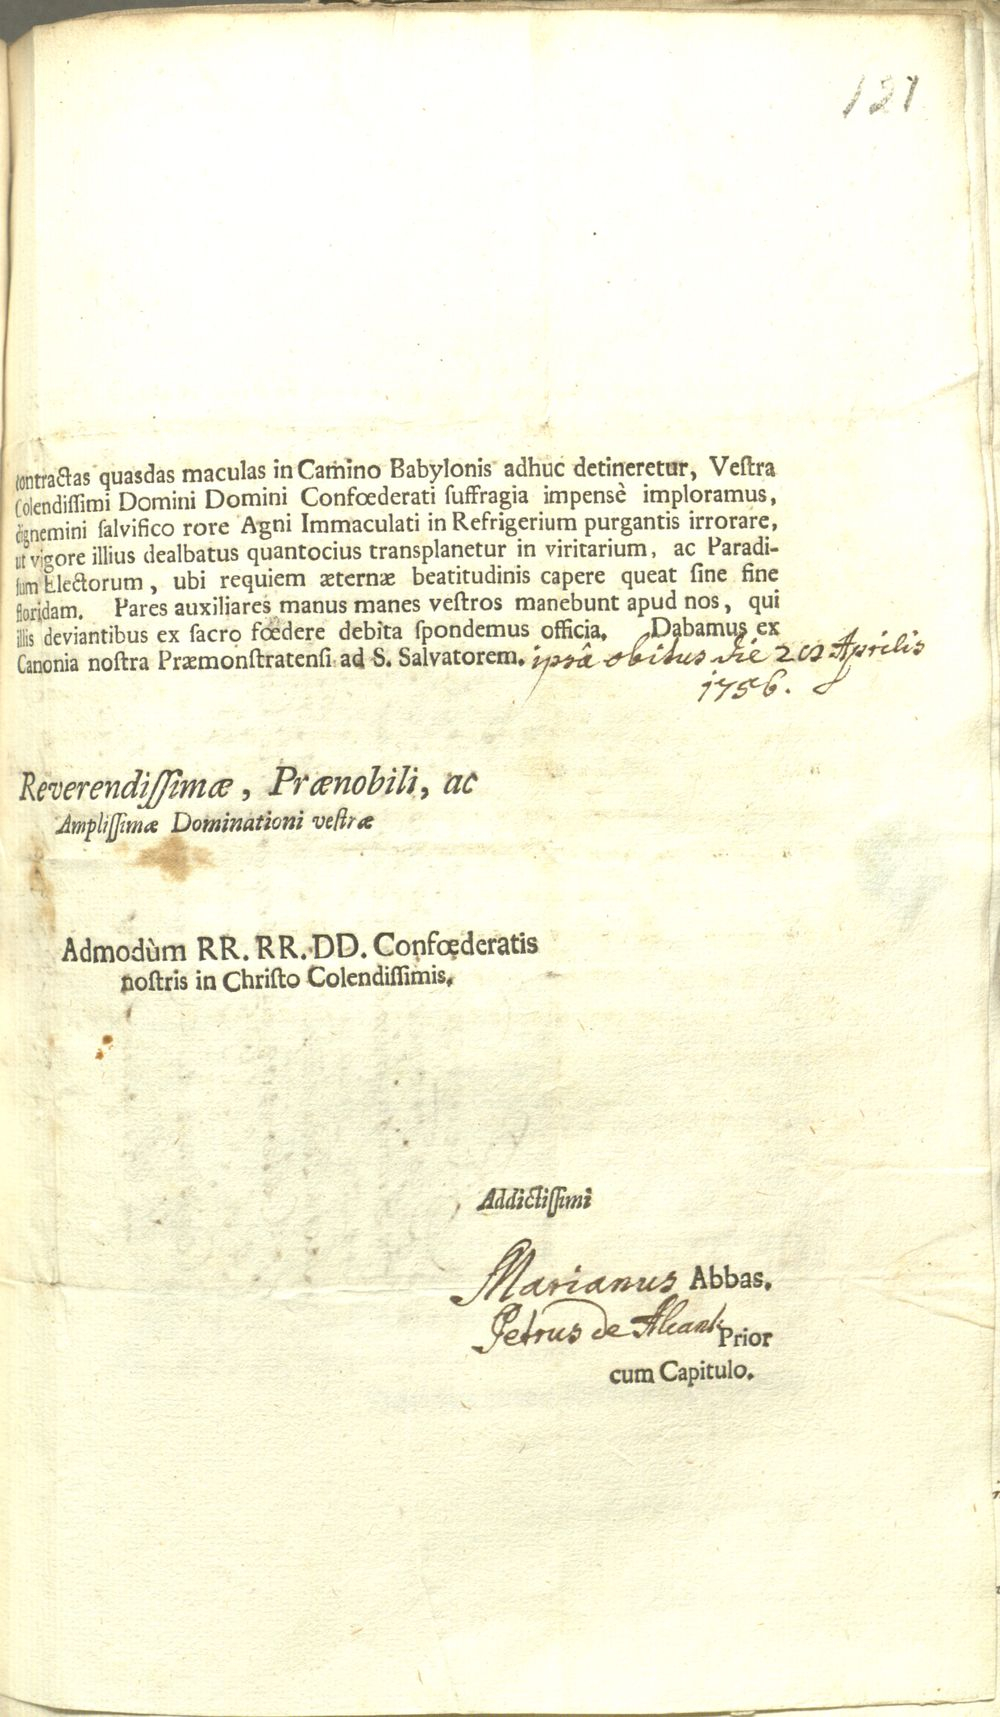 121
contractas quasdas maculas in Camino Babylonis adhuc detineretur, Veſtra
Colendiſſimi Domini Domini Confœderati ſuffragia impensè imploramus,
dignemini ſalvifico rore Agni Immaculati in Refrigerium purgantis irrorare,
ut vigore illius dealbatus quantocius transplanetur in viritarium, ac Paradi-
ſum Electorum, ubi requiem æternæ beatitudinis capere queat ſine fine
floridam. Pares auxiliares manus manes veſtros manebunt apud nos, qui
illis deviantibus ex ſacro fœdere debita ſpondemus officia. Dabamus ex
Canonia noſtra Præmonſtratenſi ad S. Salvatorem. ipsâ obitus die Aprilis
1756.
Reverendiſſimæ, Prænobili, ac
Ampliſſimæ Dominationi veſtræ
Admodùm RR. RR. DD. Confœderatis
noſtris in Chriſto Colendiſſimis.
Addictiſſimi
Marianus Abbas.
Petrus de Alcant. Prior
cum Capitulo.